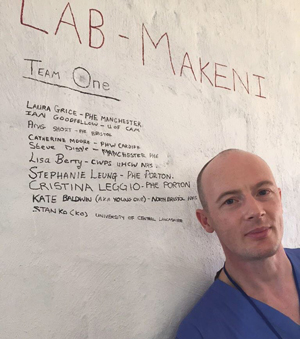 LAB - MAKENI
TEAM One
LAURA GRICE - PHE MANCHESTER
IAN GOODFELLOW - U OF CAM
CATHERINE MOORE - PHW CARDIFF
Steve Diggle - MANCHESTER
Lisa Berry - UHCW NHS
STEPHANIE LEUNG - PHE PORTON.
CRISTINA LEGGIO - PHE PORTON
KATE BALDWIN (AKA YOUNG ONE) - NORTH BRISTOL
STAN KO (KO) UNIVERSITY OF CENTRAL LANCASHIRE